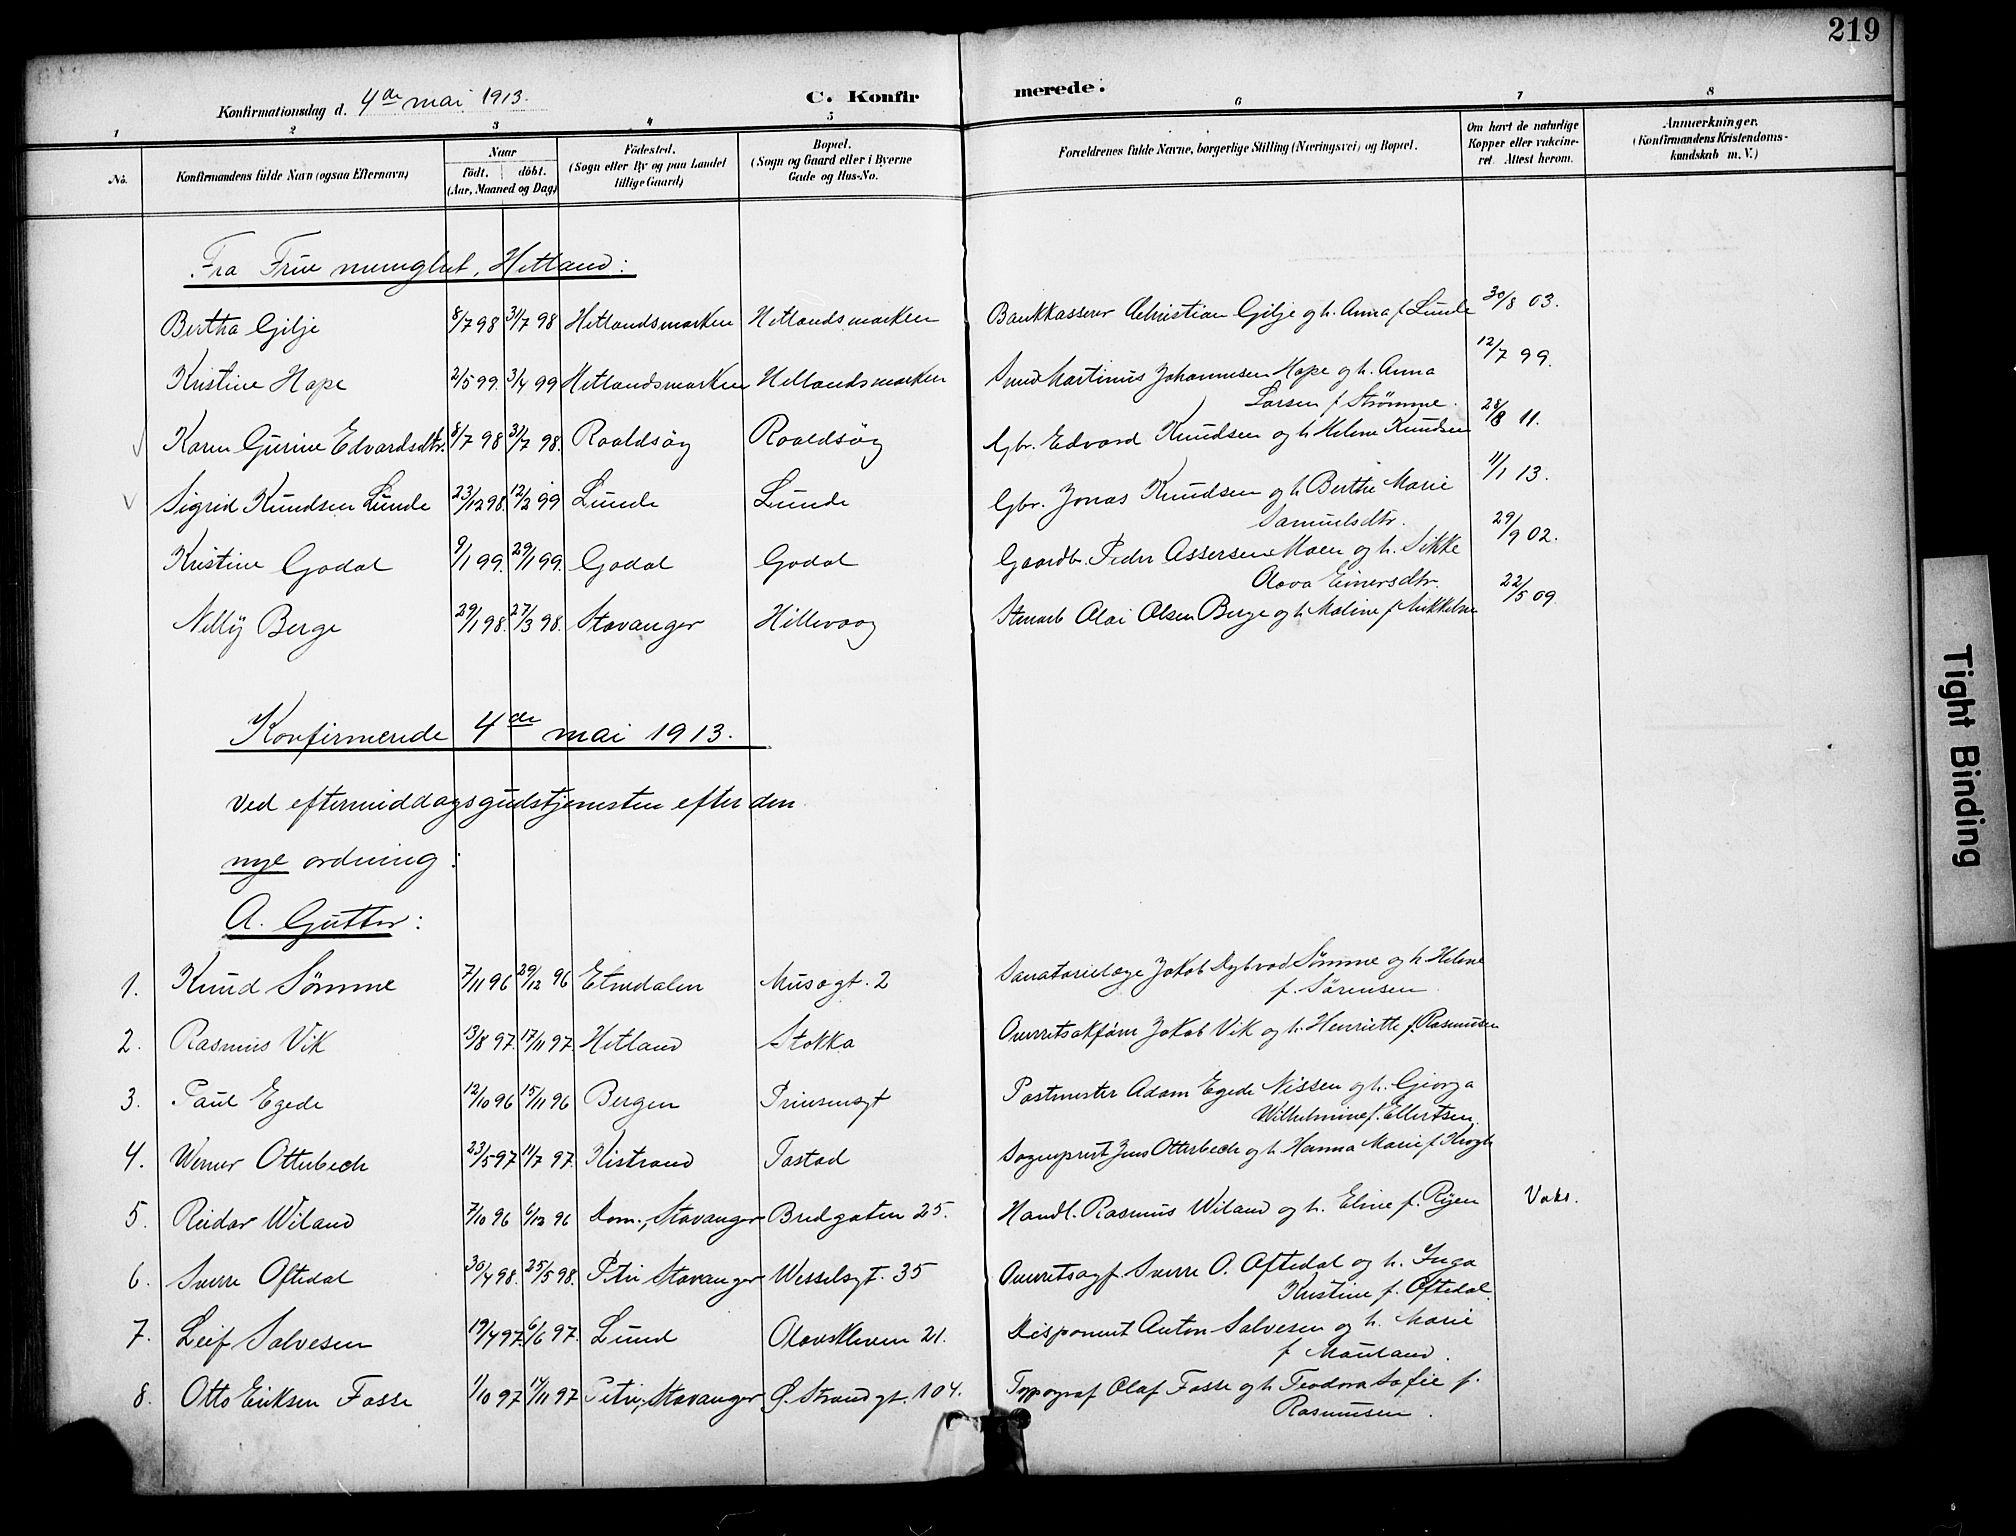 219
Konfirmationsdag d. 4de mai 1913.
C. Konfir
merede.
1 2 3 4 5 6 7 8
No.
Konfirmandens fulde Navn (ogsaa Efternavn)
Naar
födt. döbt.
(Aar, Maaned og Dag)
Födested.
(Sogn eller By og paa Landet
tillige Gaard)
Bopæl.
(Sogn og Gaard eller i Byerne
Gade og Hus-No.
Forældrenes fulde Navne, borgerlige Stilling (Næringsvei) og Bopæl.
Om havt de naturlige
Kopper eller vakcine-
ret. Attest herom.
Anmærkninger.
(Konfirmandens Kristendoms-
kundskab m. V.)
Fra Frue menighet, Hetland:
Bertha Gilje 8/7 98 31/7 98 Hetlandsmarken Hetlandsmarken Bankkasserer Christian Gilje og h. Anna f Lunde 30/8 03.
Kristine Hope 2/5 99. 3/4 99 Hetlandsmarken Hetlandsmarken Smed Martinus Johannesen Hope og h. Anna 12/7 99.
Larsen f Strømme.
Karen Gurine Edvardsdtr. 8/7 98 31/7 98. Roaldsøy Roaldsøy Gbr. Edvard Knudsen og h Helene Knudsen 28/8 11.
Sigrid Knudsen Lunde 23/12 98. 12/2 99 Lunde Lunde Gbr. Jonas Knudsen og h Berthe Marie 11/1 13.
Samuelsdtr.
Kristine Godal 9/1 99. 29/1 99. Godal Godal Gaardb. Peder Assersen Moen og h. Sikke 29/9 02.
Olava Einersdtr.
Nelly Berge 29/1 98. 27/3 98. Stavanger Hillevaag Stenarb Olai Olsen Berge og h Maline f Mikkelsen 22/5 09.
Konfirmerede 4de mai 1913.
ved eftermiddagsgudstjenesten efter den
nye ordning:
A. Gutter:
1. Knud Sømme 7/11 96 29/12 96 Etnedalen Musegt. 2 Sanatorielæge Jakob Dybvad Sømme og h. Helene
f. Sørensen
2. Rasmus Vik 13/8 97. 17/11 97. Hetland Stokka Overretsakfører Jakob Vik og h. Henriette f. Rasmussen
3. Paul Egede 12/10 96 15/11 96 Bergen Prinsensgt Postmester Adam Egede Nissen og h. Georga
Wilhelmine f. Ellertsen.
4. Werner Otterbech 23/5 97 11/7 97. Kistrand Tastad Sogneprest Jens Otterbech og h. Hanna Marie f. Krogh
5. Reidar Wiland 7/10 96 6/12 96 Dom., Stavanger Bredgaten 25. Handl. Rasmus Wiland og h. Eline f. Ryen Vaks.
6. Sverre Oftedal 30/4 98. 25/5 98. Petri Stavanger Wesselsgt. 35 Overretsagf. Sverre O. Oftedal og h. Inga
Kristine f. Oftedal.
7. Leif Salvesen 19/4 97. 6/6 97. Lund Olavskleven 21. Disponent Anton Salvesen og h. Marie
f Mauland.
8. Otto Eriksen Fosse 1/10 97 14/11 97 Petri, Stavanger Ø. Strandgt. 104. Typograf Olaf Fosse og h Teodora Sofie f.
Rasmussen.
Tight Binding